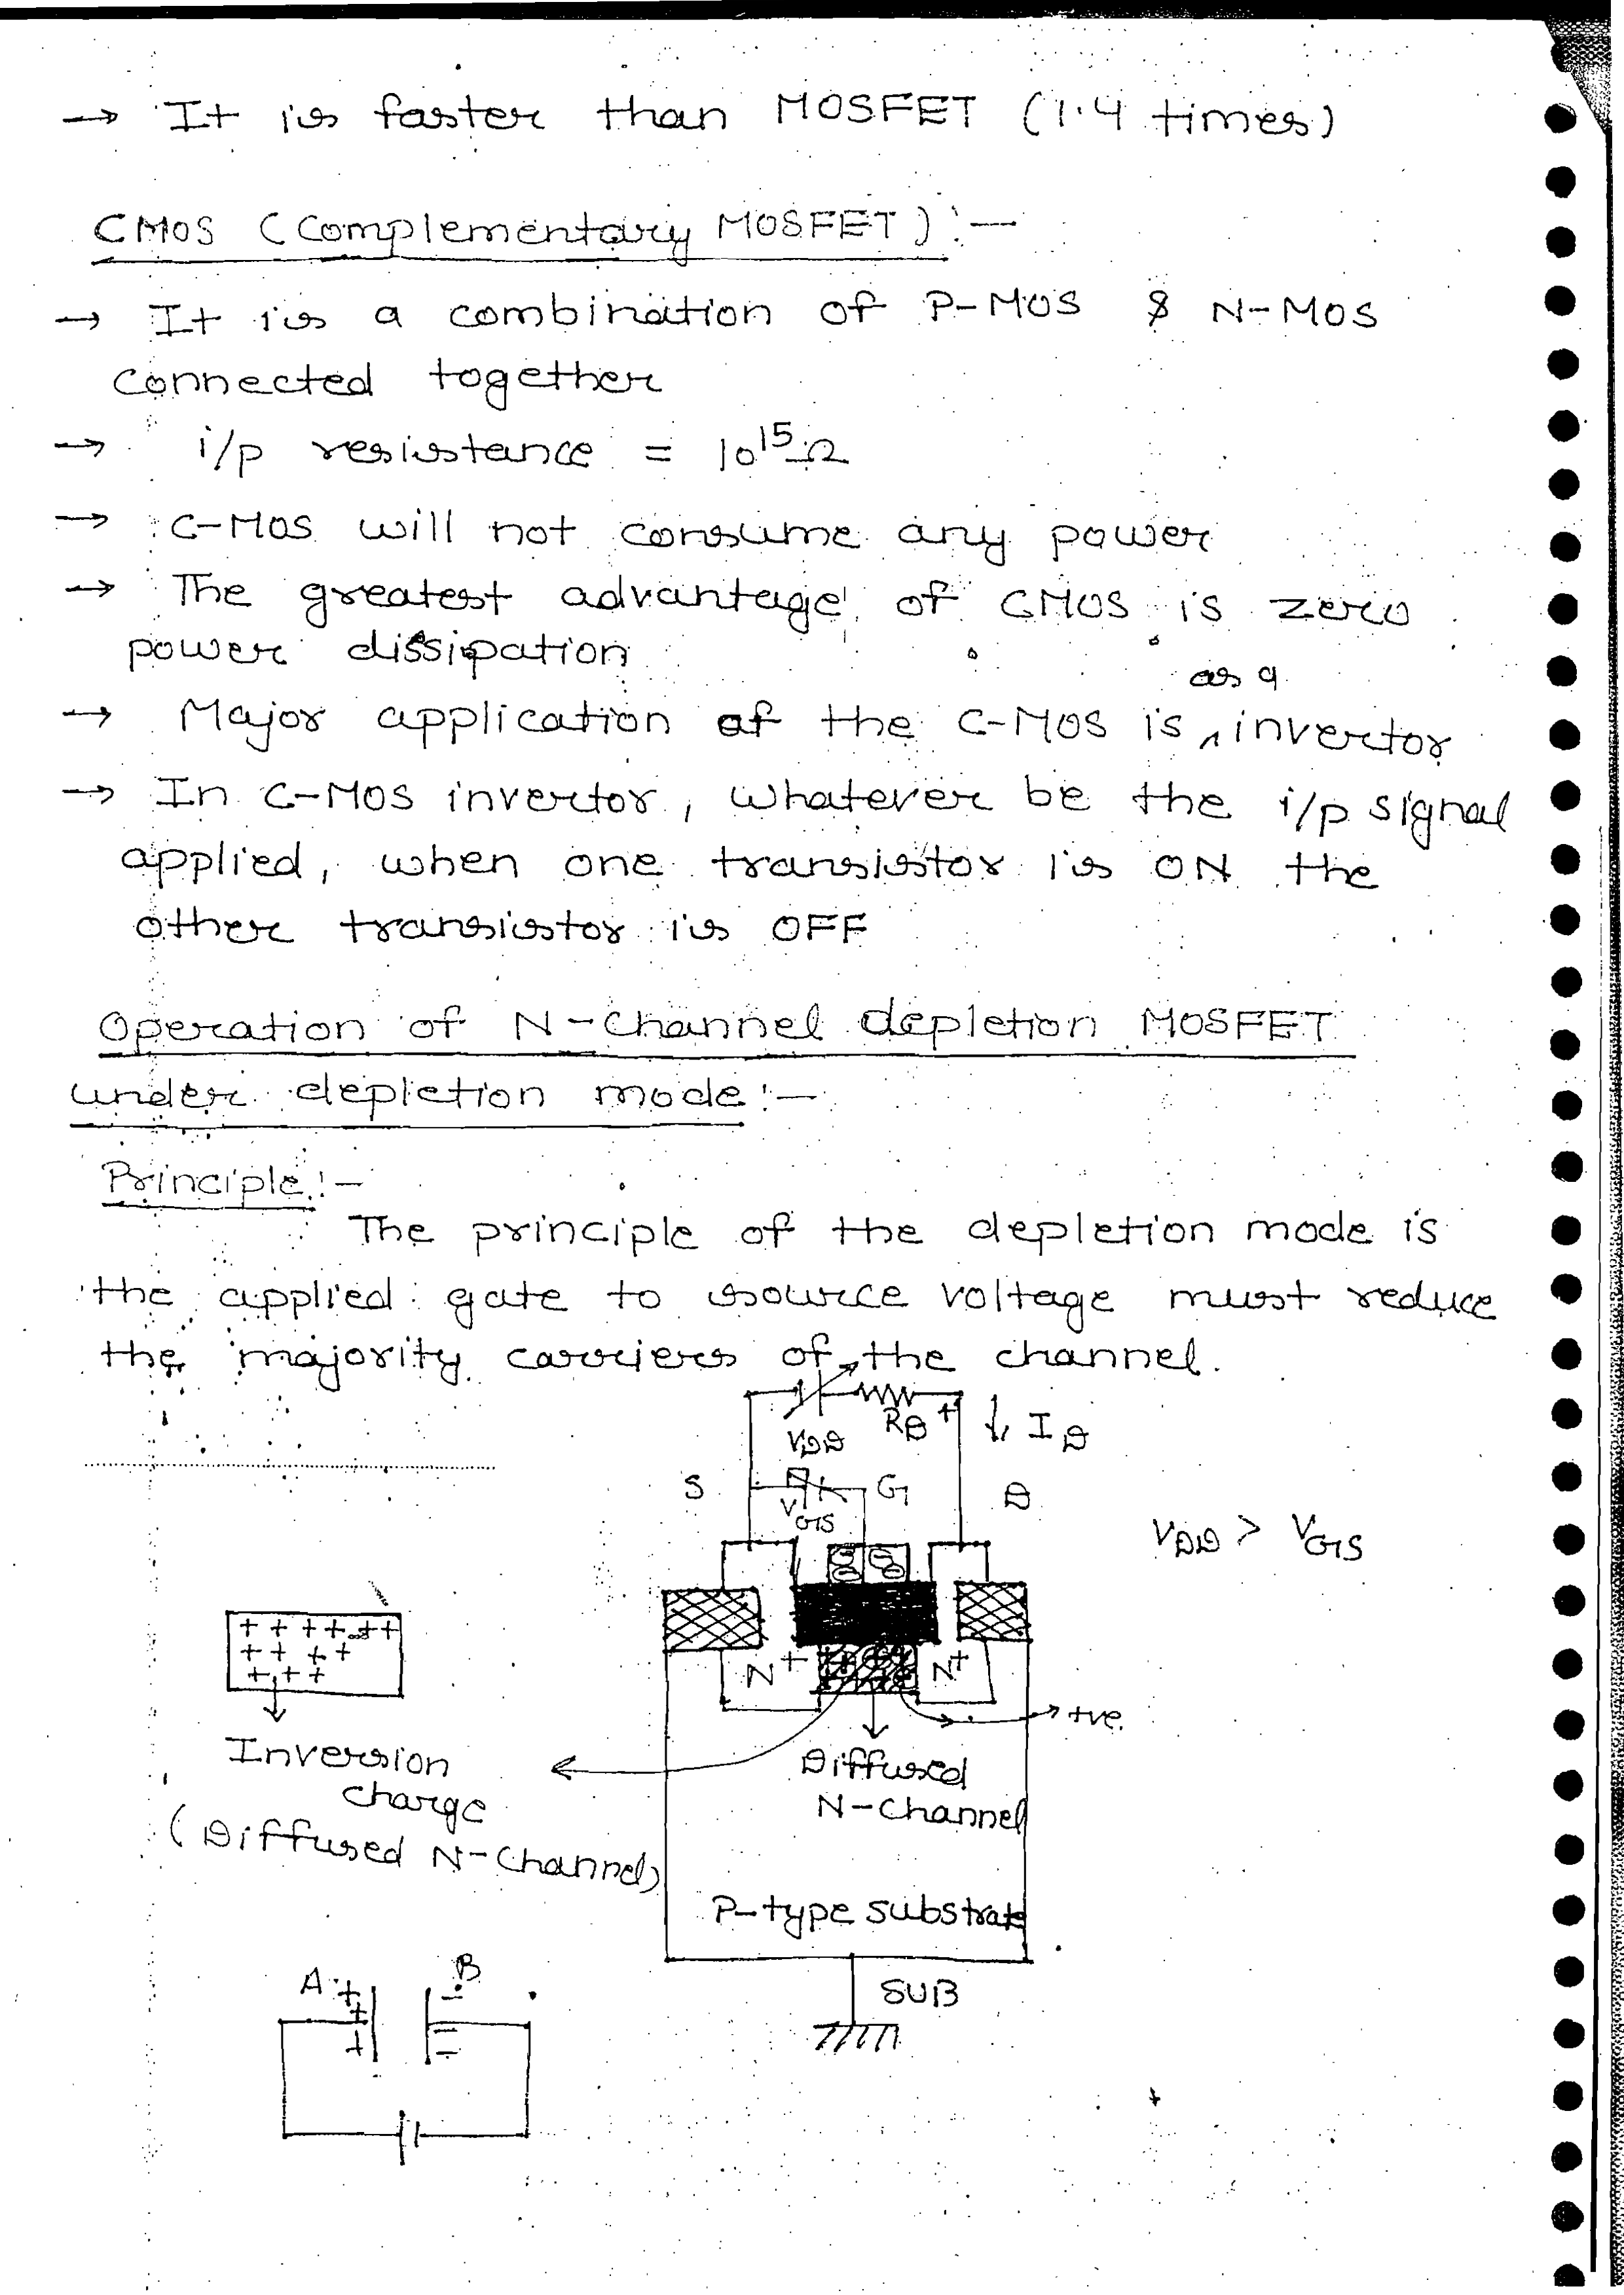 → It is faster than MOSFET (1.4 times)
CMOS (Complementary MOSFET) :-
→ It is a combination of P-MOS & N-MOS
connected together
→ i/p resistance = 10¹⁵Ω
→ C-MOS will not consume any power
→ The greatest advantage of CMOS is zero
power dissipation
as a
→ Major application of the C-MOS is ^ invertor
→ In C-MOS invertor, whatever be the i/p signal
applied, when one transistor is ON the
other transistor is OFF
Operation of N-Channel depletion MOSFET
under depletion mode :-
Principle :-
The principle of the depletion mode is
the applied gate to source voltage must reduce
the majority carriers of the channel.
V_DD R_D + ↓ I_D
S V_GS G D
V_DD > V_GS
+ + + + + +
+ + + +
+ + +
N+ N+
+ve
Inversion
charge
(Diffused N-Channel)
Diffused
N-Channel
P-type substrate
SUB
A + + + B - - -